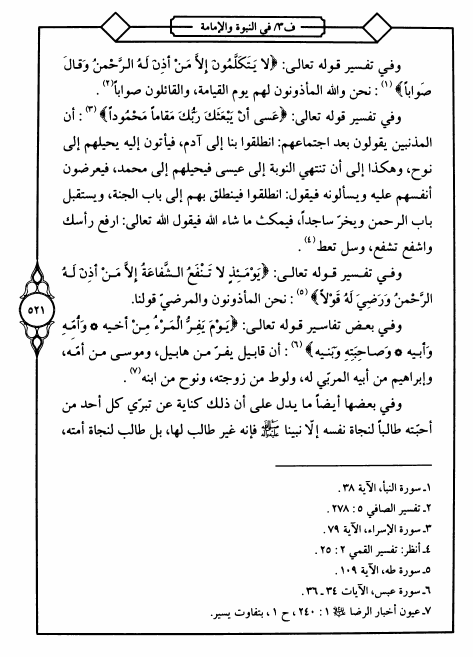 ف٣/ في النبوة والإمامة
وفي تفسير قوله تعالى: ﴿لا يَتَكَلَّمُونَ إلاَّ مَنْ أذِنَ لَهُ الرَّحْمنُ وَقالَ
صَواباً﴾(١): نحن والله المأذونون لهم يوم القيامة، والقائلون صواباً(٢).
وفي تفسير قوله تعالى: ﴿عَسى أن يَبْعَثَكَ رَبُّكَ مَقاماً مَحْمُوداً﴾(٣): أن
المذنبين يقولون بعد اجتماعهم: انطلقوا بنا إلى آدم، فيأتون إليه يحيلهم إلى
نوح، وهكذا إلى أن تنتهي النوبة إلى عيسى فيحيلهم إلى محمد، فيعرضون
أنفسهم عليه ويسألونه فيقول: انطلقوا فينطلق بهم إلى باب الجنة، ويستقبل
باب الرحمن ويخرّ ساجداً، فيمكث ما شاء الله فيقول الله تعالى: ارفع رأسك
واشفع تشفع، وسل تعط(٤).
وفي تفسير قوله تعالى: ﴿يَوْمَئِذٍ لا تَنْفَعُ الشَّفاعَةُ إلاَّ مَنْ أذِنَ لَهُ
الرَّحْمنُ وَرَضِيَ لَهُ قَوْلاً﴾(٥): نحن المأذونون والمرضيّ قولنا.
وفي بعض تفاسير قوله تعالى: ﴿يَوْمَ يَفِرُّ المَرْءُ مِنْ أخيه * وَأُمِّهِ
وَأبيه * وَصاحِبَتِهِ وَبَنيه﴾(٦): أن قابيل يفرّ من هابيل، وموسى من أمّه،
وإبراهيم من أبيه المربّي له، ولوط من زوجته، ونوح من ابنه(٧).
وفي بعضها أيضاً ما يدل على أن ذلك كناية عن تبرّي كل أحد من
أحبّته طالباً لنجاة نفسه إلّا نبينا ﷺ فإنه غير طالب لها، بل طالب لنجاة أمته،
٥٢١
١ـ سورة النبأ، الآية ٣٨.
٢ـ تفسير الصافي ٥: ٢٧٨.
٣ـ سورة الإسراء، الآية ٧٩.
٤ـ أنظر: تفسير القمي ٢: ٢٥.
٥ـ سورة طه، الآية ١٠٩.
٦ـ سورة عبس، الآيات ٣٤ ـ ٣٦.
٧ـ عيون أخبار الرضا ١: ٢٤٠، ح ١، بتفاوت يسير.